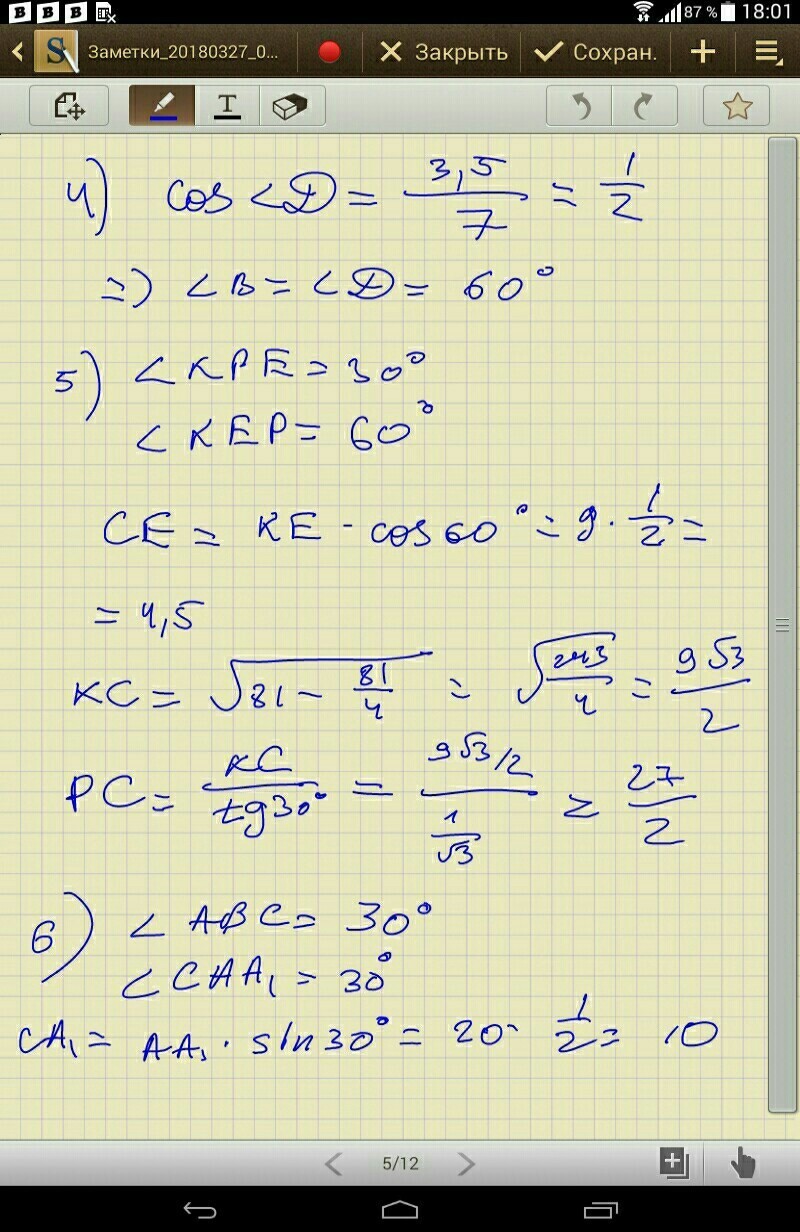 B B B 87 % 18:01
S Заметки_20180327_0... Закрыть Сохран.
T
4) cos ∠D = 3,5/7 = 1/2
=> ∠B = ∠D = 60°
5) ∠KPE = 30°
∠KEP = 60°
CE = KE · cos 60° = 9 · 1/2 =
= 4,5
KC = √(81 − 81/4) = √(243/4) = 9√3/2
PC = KC/tg30° = (9√3/2)/(1/√3) = 27/2
6) ∠ABC = 30°
∠CAA₁ = 30°
CA₁ = AA₁ · sin30° = 20 · 1/2 = 10
5/12